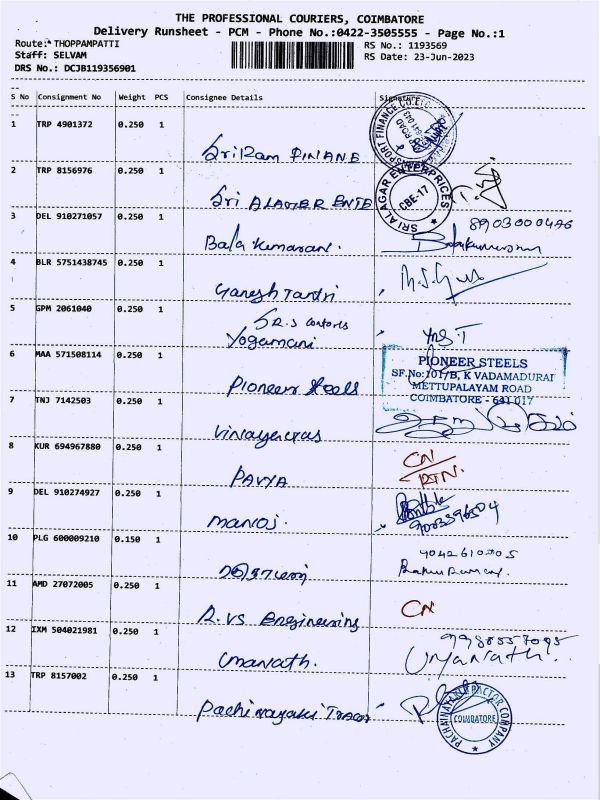 THE PROFESSIONAL COURIERS, COIMBATORE
Delivery Runsheet - PCM - Phone No.:0422-3505555 - Page No.:1
Route: THOPPAMPATTI
RS No.: 1193569
Staff: SELVAM
RS Date: 23-Jun-2023
DRS No.: DCJB119356901
S No Consignment No Weight PCS Consignee Details Signature
1 TRP 4901372 0.250 1
SriRam FINANE
2 TRP 8156976 0.250 1
Sri ALAGER ENTE
SRI ALAGAR ENTERPRICES
CBE-17
3 DEL 910271057 0.250 1
8903000446
Bala kumaran.
4 BLR 5751438745 0.250 1
Ganesh Tantri
5 GPM 2061040 0.250 1
S R.S
Yogamani
6 MAA 571508114 0.250 1
Pioneer Steels
PIONEER STEELS
SF.No:101/B, K VADAMADURAI
METTUPALAYAM ROAD
COIMBATORE - 641 017
7 TNJ 7142503 0.250 1
8 KUR 694967880 0.250 1
PAVYA
CN
RTN.
9 DEL 910274927 0.250 1
manoj.
10 PLG 600009210 0.150 1
11 AMD 27072005 0.250 1
R.VS Engineering
CN
12 IXM 504021981 0.250 1
umanath.
Umanath.
13 TRP 8157002 0.250 1
Pachinayaki
COIMBATORE